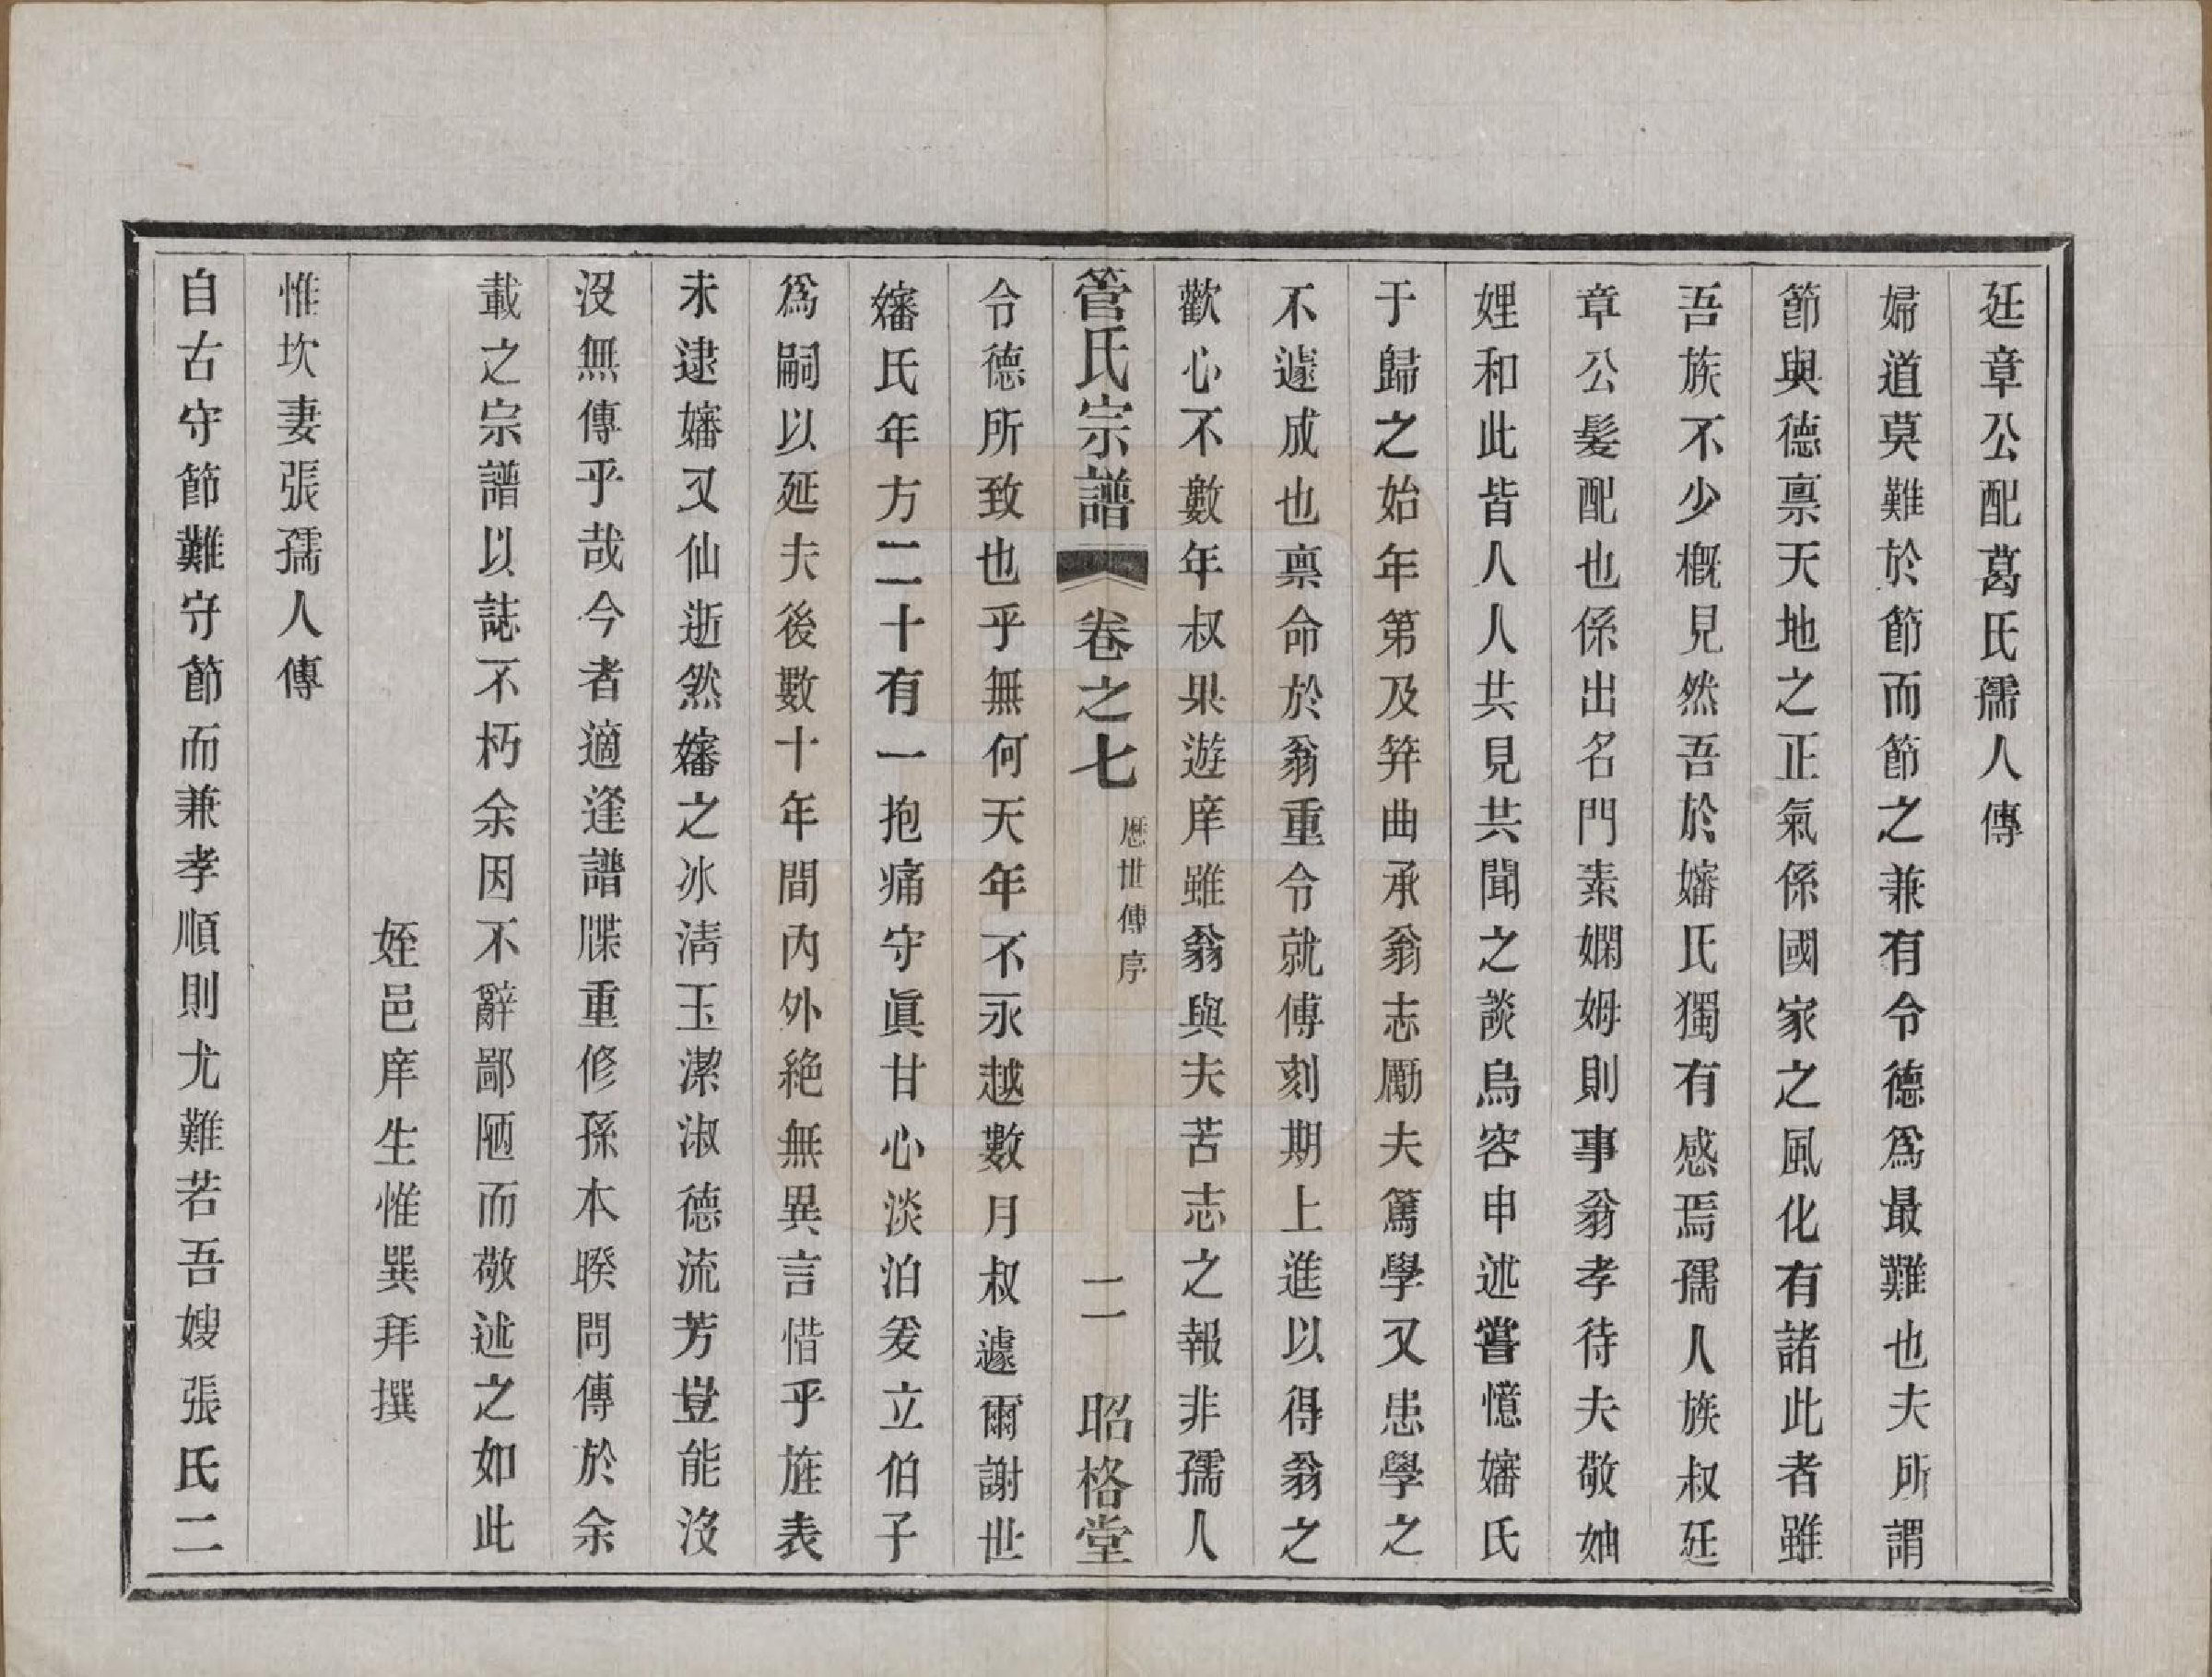 廷章公配葛氏孺人傳
婦道莫難於節而節之兼有令德爲最難也夫所謂
節與德禀天地之正氣係國家之風化有諸此者雖
吾族不少概見然吾於嬸氏獨有感焉孺人族叔廷
章公髮配也係出名門素嫻姆則事翁孝待夫敬妯
娌和此皆人人共見共聞之談烏容申述嘗憶嬸氏
于歸之始年第及笄曲承翁志勵夫篤學又患學之
不遽成也禀命於翁重令就傅刻期上進以得翁之
歡心不數年叔果遊庠雖翁與夫苦志之報非孺人
管氏宗譜 卷之七 歷世傳序 二 昭格堂
令德所致也乎無何天年不永越數月叔遽爾謝世
嬸氏年方二十有一抱痛守眞甘心淡泊爰立伯子
爲嗣以延夫後數十年間內外絶無異言惜乎旌表
未逮嬸又仙逝然嬸之冰淸玉潔淑德流芳豈能沒
沒無傳乎哉今者適逢譜牒重修孫木暌問傳於余
載之宗譜以誌不朽余因不辭鄙陋而敬述之如此
姪邑庠生惟巽拜撰
惟坎妻張孺人傳
自古守節難守節而兼孝順則尤難若吾嫂張氏二